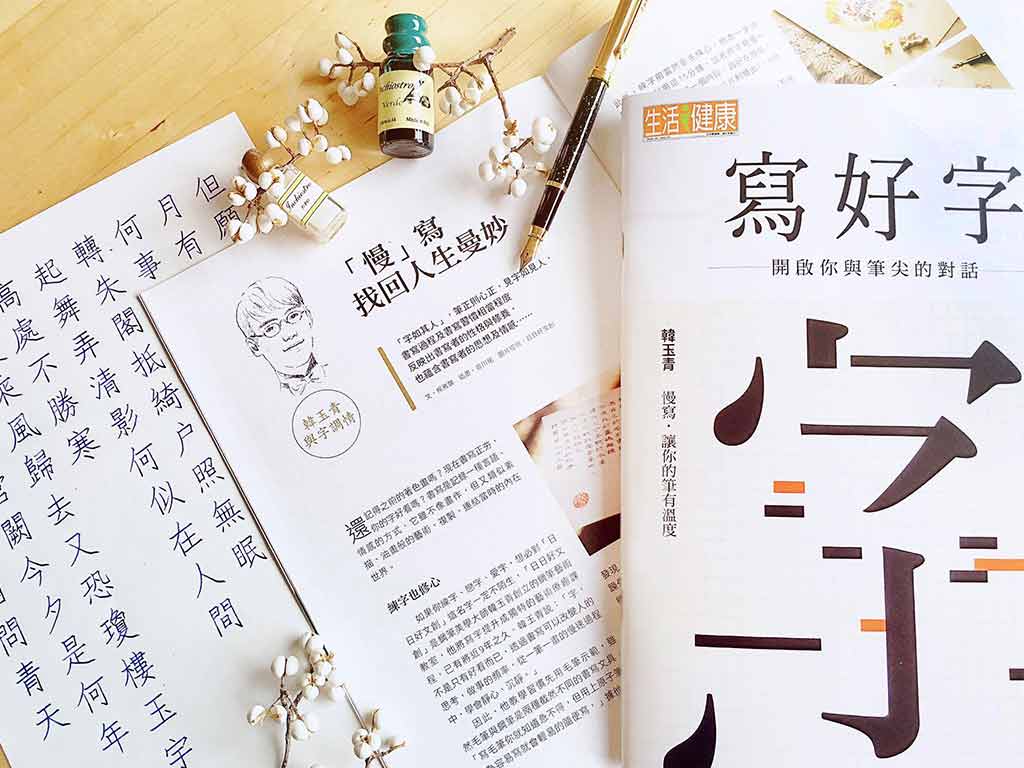 但願
月有
何事
轉朱閣抵綺户照無眠
起舞弄清影何似在人間
高處不勝寒
乘風歸去又恐瓊樓玉宇
宮闕今夕是何年
問青天
「慢」寫
找回人生曼妙
「字如其人」,筆正則心正,見字如見人,
書寫過程及書寫習慣相當程度
反映出書寫者的性格與修養,
也蘊含書寫者的思想及情感……
韓玉青
與字調情
還記得之前的著色畫嗎?現在書寫正夯,
你的字好看嗎?書寫是記錄一種言語、
情感的方式,它雖不像畫作,但又類似素
描、油畫般的藝術,複製、連結當時的內在
世界。
練字也修心
如果你練字、戀字、愛字,想必對「日
日好文創」這名字一定不陌生。「日日好文
創」是鋼筆美學大師韓玉青創立的鋼筆藝術
教室,他將寫字提升成獨特的藝術療癒課
程,已有將近9年之久。韓玉青說:「『字』
不是只有好看而已,透過書寫可以改變人的
思考、做事的頻率,從一筆一畫的慢速過程
中,學會靜心、沉靜。」
因此,他教學習慣先用毛筆示範,雖
然毛筆與鋼筆是兩種截然不同的書寫文具,
「寫毛筆你就知道急不得,但用上原子筆
容易寫就會輕易的隨便寫,」
生活健康
寫好字
開啟你與筆尖的對話
韓玉青
慢寫,讓你的筆有溫度
字